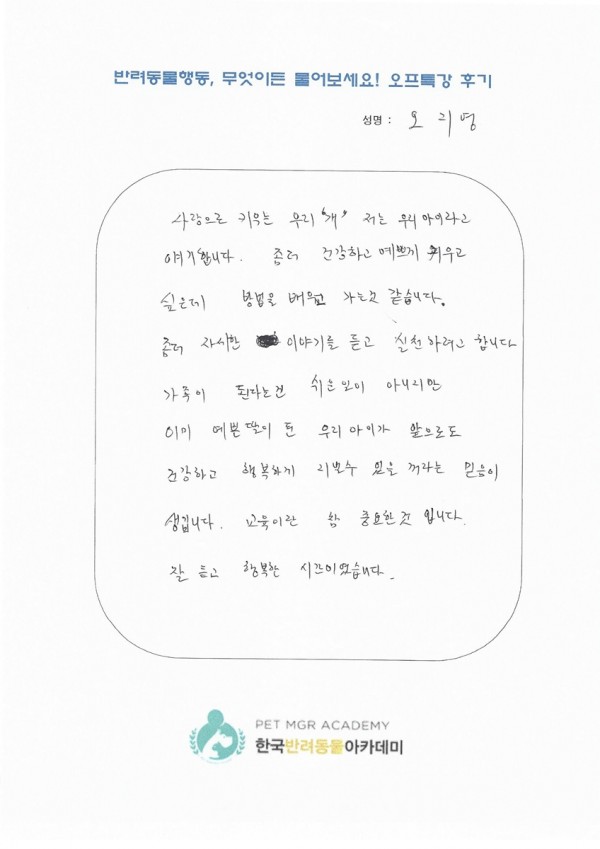 반려동물행동, 무엇이든 물어보세요! 오프특강 후기
성명 : 오 리 영
사랑으로 키우는 우리 "개" 저는 우리아이라고
얘기합니다. 좀더 건강하고 예쁘게 키우고
싶은데 방법을 배워 가는것 같습니다.
좀더 자세한 이야기를 듣고 실천하려고 합니다
가족이 된다는건 쉬운일이 아니지만
이미 예쁜딸이 된 우리아이가 앞으로도
건강하고 행복하게 지낼수 있을 꺼라는 믿음이
생깁니다. 교육이란 참 중요한것 입니다.
잘 듣고 행복한 시간이었습니다.
PET MGR ACADEMY
한국반려동물아카데미